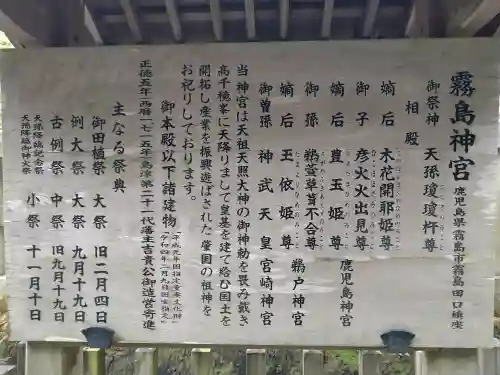 霧島神宮 鹿児島県霧島市霧島田口鎮座
御祭神 天孫瓊瓊杵尊
相殿
嫡后 木花開耶姫尊
御子 彦火火出見尊 鹿児島神宮
嫡后 豊玉姫尊
御孫 鵜葺草葺不合尊 鵜戸神宮
嫡后 玉依姫尊
御曽孫 神武天皇 宮崎神宮
当神宮は天祖天照大神の御神勅を畏み戴き
高千穂峯に天降りまして皇基を建て給ひ国土を
開拓し産業を振興遊ばされた肇国の祖神を
お祀りしております。
御本殿以下諸建物
正徳五年西暦一七一五年島津第二十一代藩主吉貴公御造営寄進
主なる祭典
御田植祭 大祭 旧二月四日
例大祭 大祭 九月十九日
古例祭 中祭 旧九月十九日
天孫降臨記念祭
天孫降臨御神火祭 小祭 十一月十日